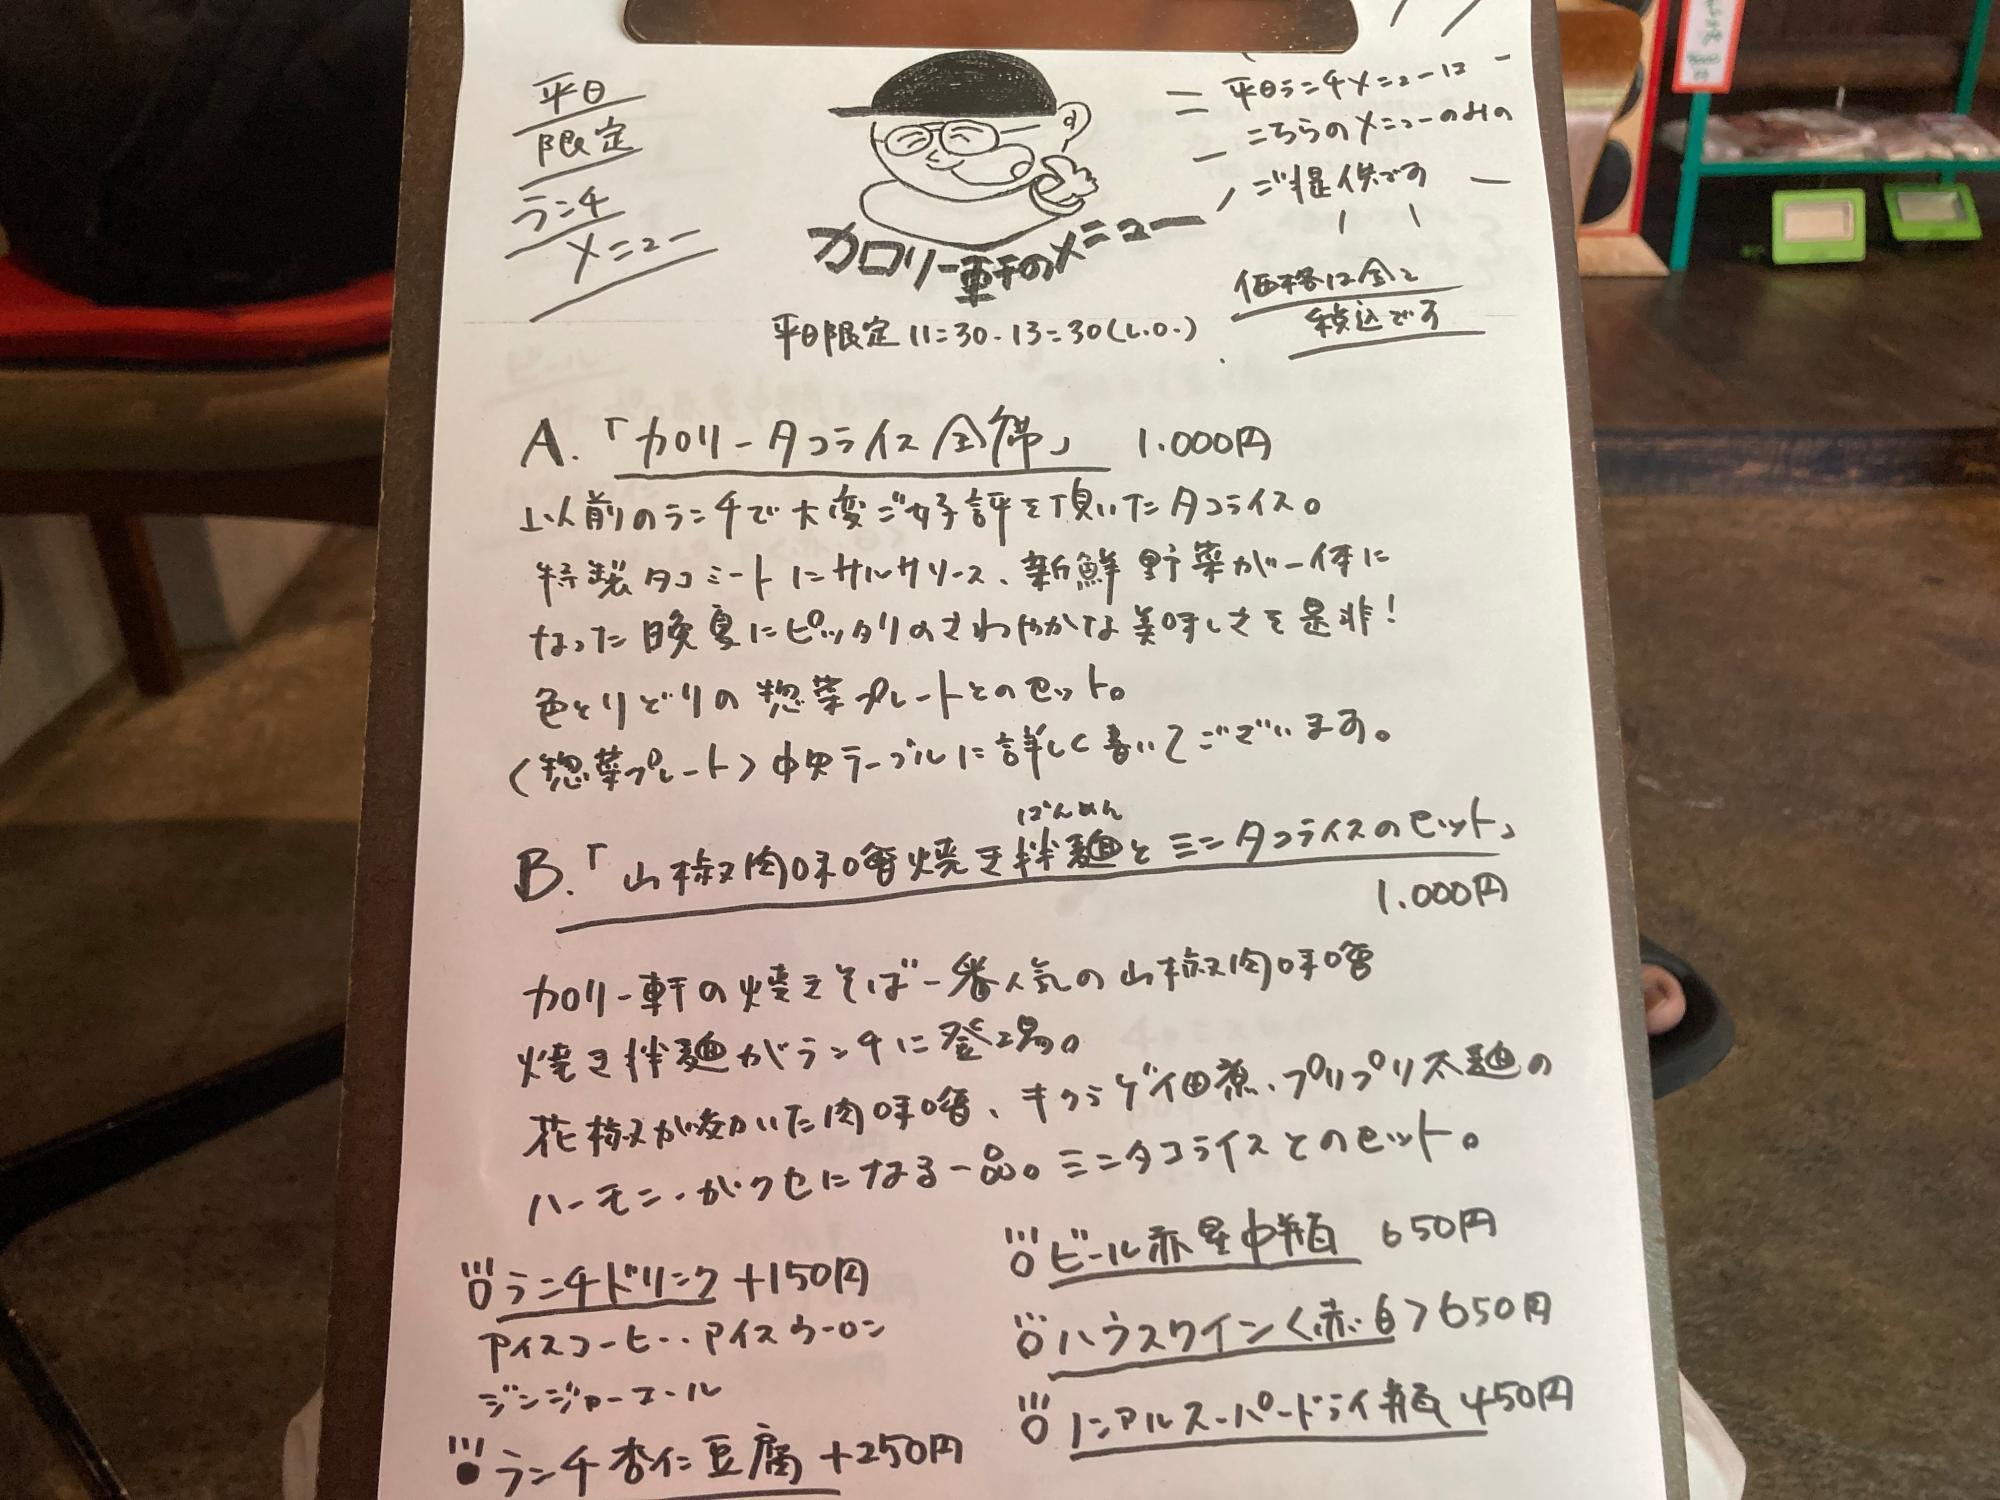 平日
限定
ランチ
メニュー
カロリー軒のメニュー
平日ランチメニューは
こちらのメニューのみの
ご提供です
価格は全て
税込です
平日限定 11:30-13:30(L.O.)
A.「カロリータコライス定食」 1.000円
以前のランチで大変ご好評を頂いたタコライス。
特製タコミートにサルサソース、新鮮野菜が一体に
なった晩夏にピッタリのさわやかな美味しさを是非!
色とりどりの惣菜プレートとのセット。
〈惣菜プレート〉中央テーブルに詳しく書いてございます。
ばんめん
B.「山椒肉味噌焼き拌麺とミニタコライスのセット」
1.000円
カロリー軒の焼きそば一番人気の山椒肉味噌
焼き拌麺がランチに登場。
花椒が効いた肉味噌、キクラゲ佃煮、プリプリ太麺の
ハーモニーがクセになる一品。ミニタコライスとのセット。
ランチドリンク +150円
アイスコーヒー・アイスウーロン
ジンジャーエール
ランチ杏仁豆腐 +250円
ビール赤星中瓶 650円
ハウスワイン〈赤・白〉650円
ノンアルスーパードライ瓶 450円